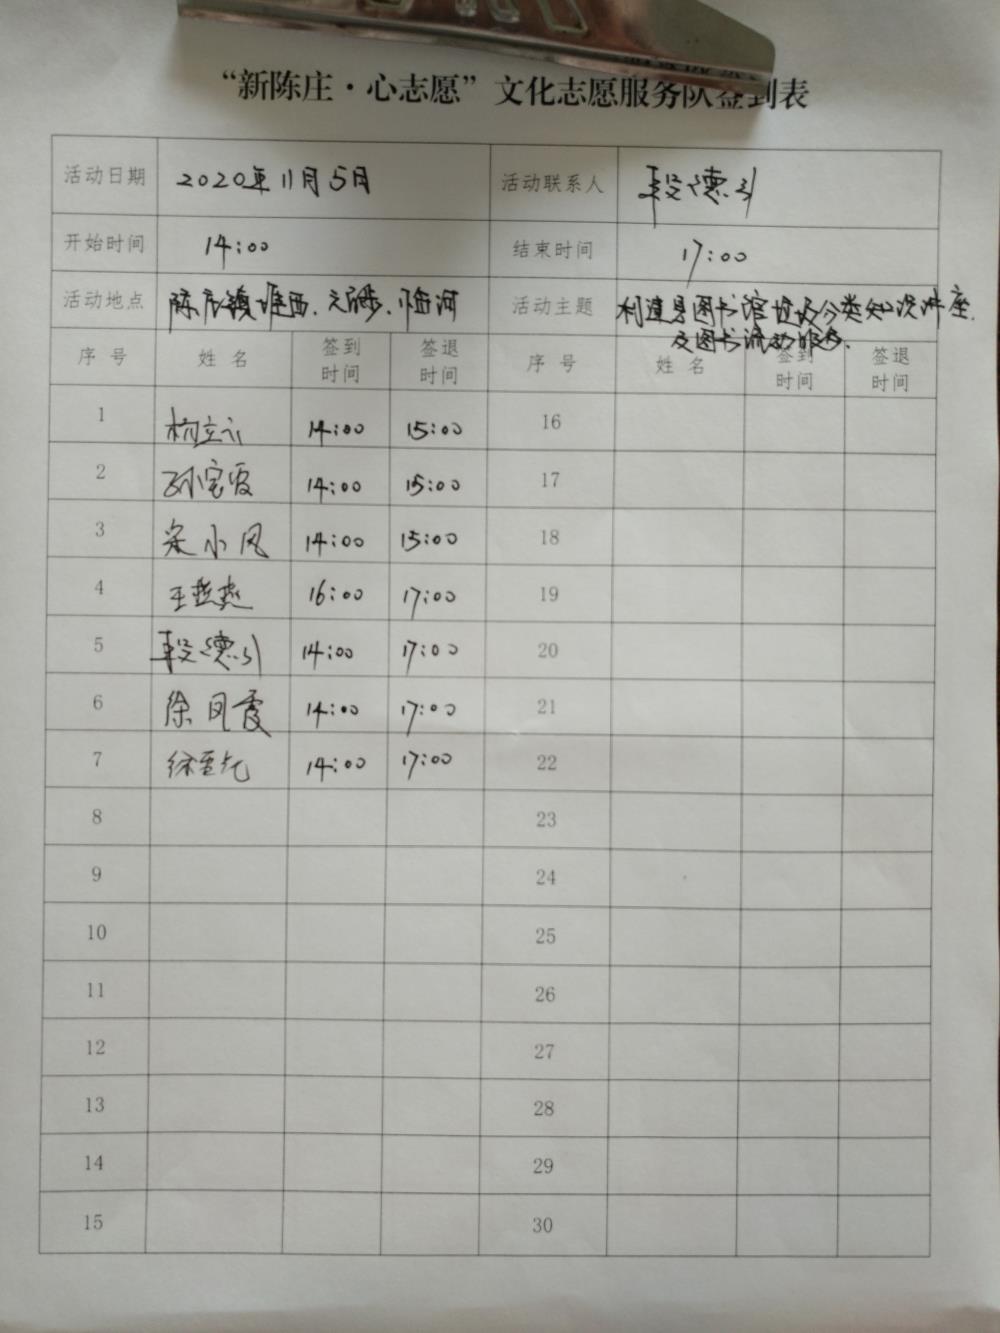 “新陈庄·心志愿”文化志愿服务队签到表
活动日期 2020年11月5日 活动联系人 段德引
开始时间 14:00 结束时间 17:00
活动地点 陈庄镇 西、 、临河 活动主题 利津县图书馆 分类知识讲座
及图书流动服务.
序号 姓名 签到时间 签退时间 序号 姓名 签到时间 签退时间
1 杨立 14:00 15:00 16
2 孙宝霞 14:00 15:00 17
3 宋小凤 14:00 15:00 18
4 王燕燕 16:00 17:00 19
5 段德引 14:00 17:00 20
6 徐凤霞 14:00 17:00 21
7 徐 14:00 17:00 22
8 23
9 24
10 25
11 26
12 27
13 28
14 29
15 30